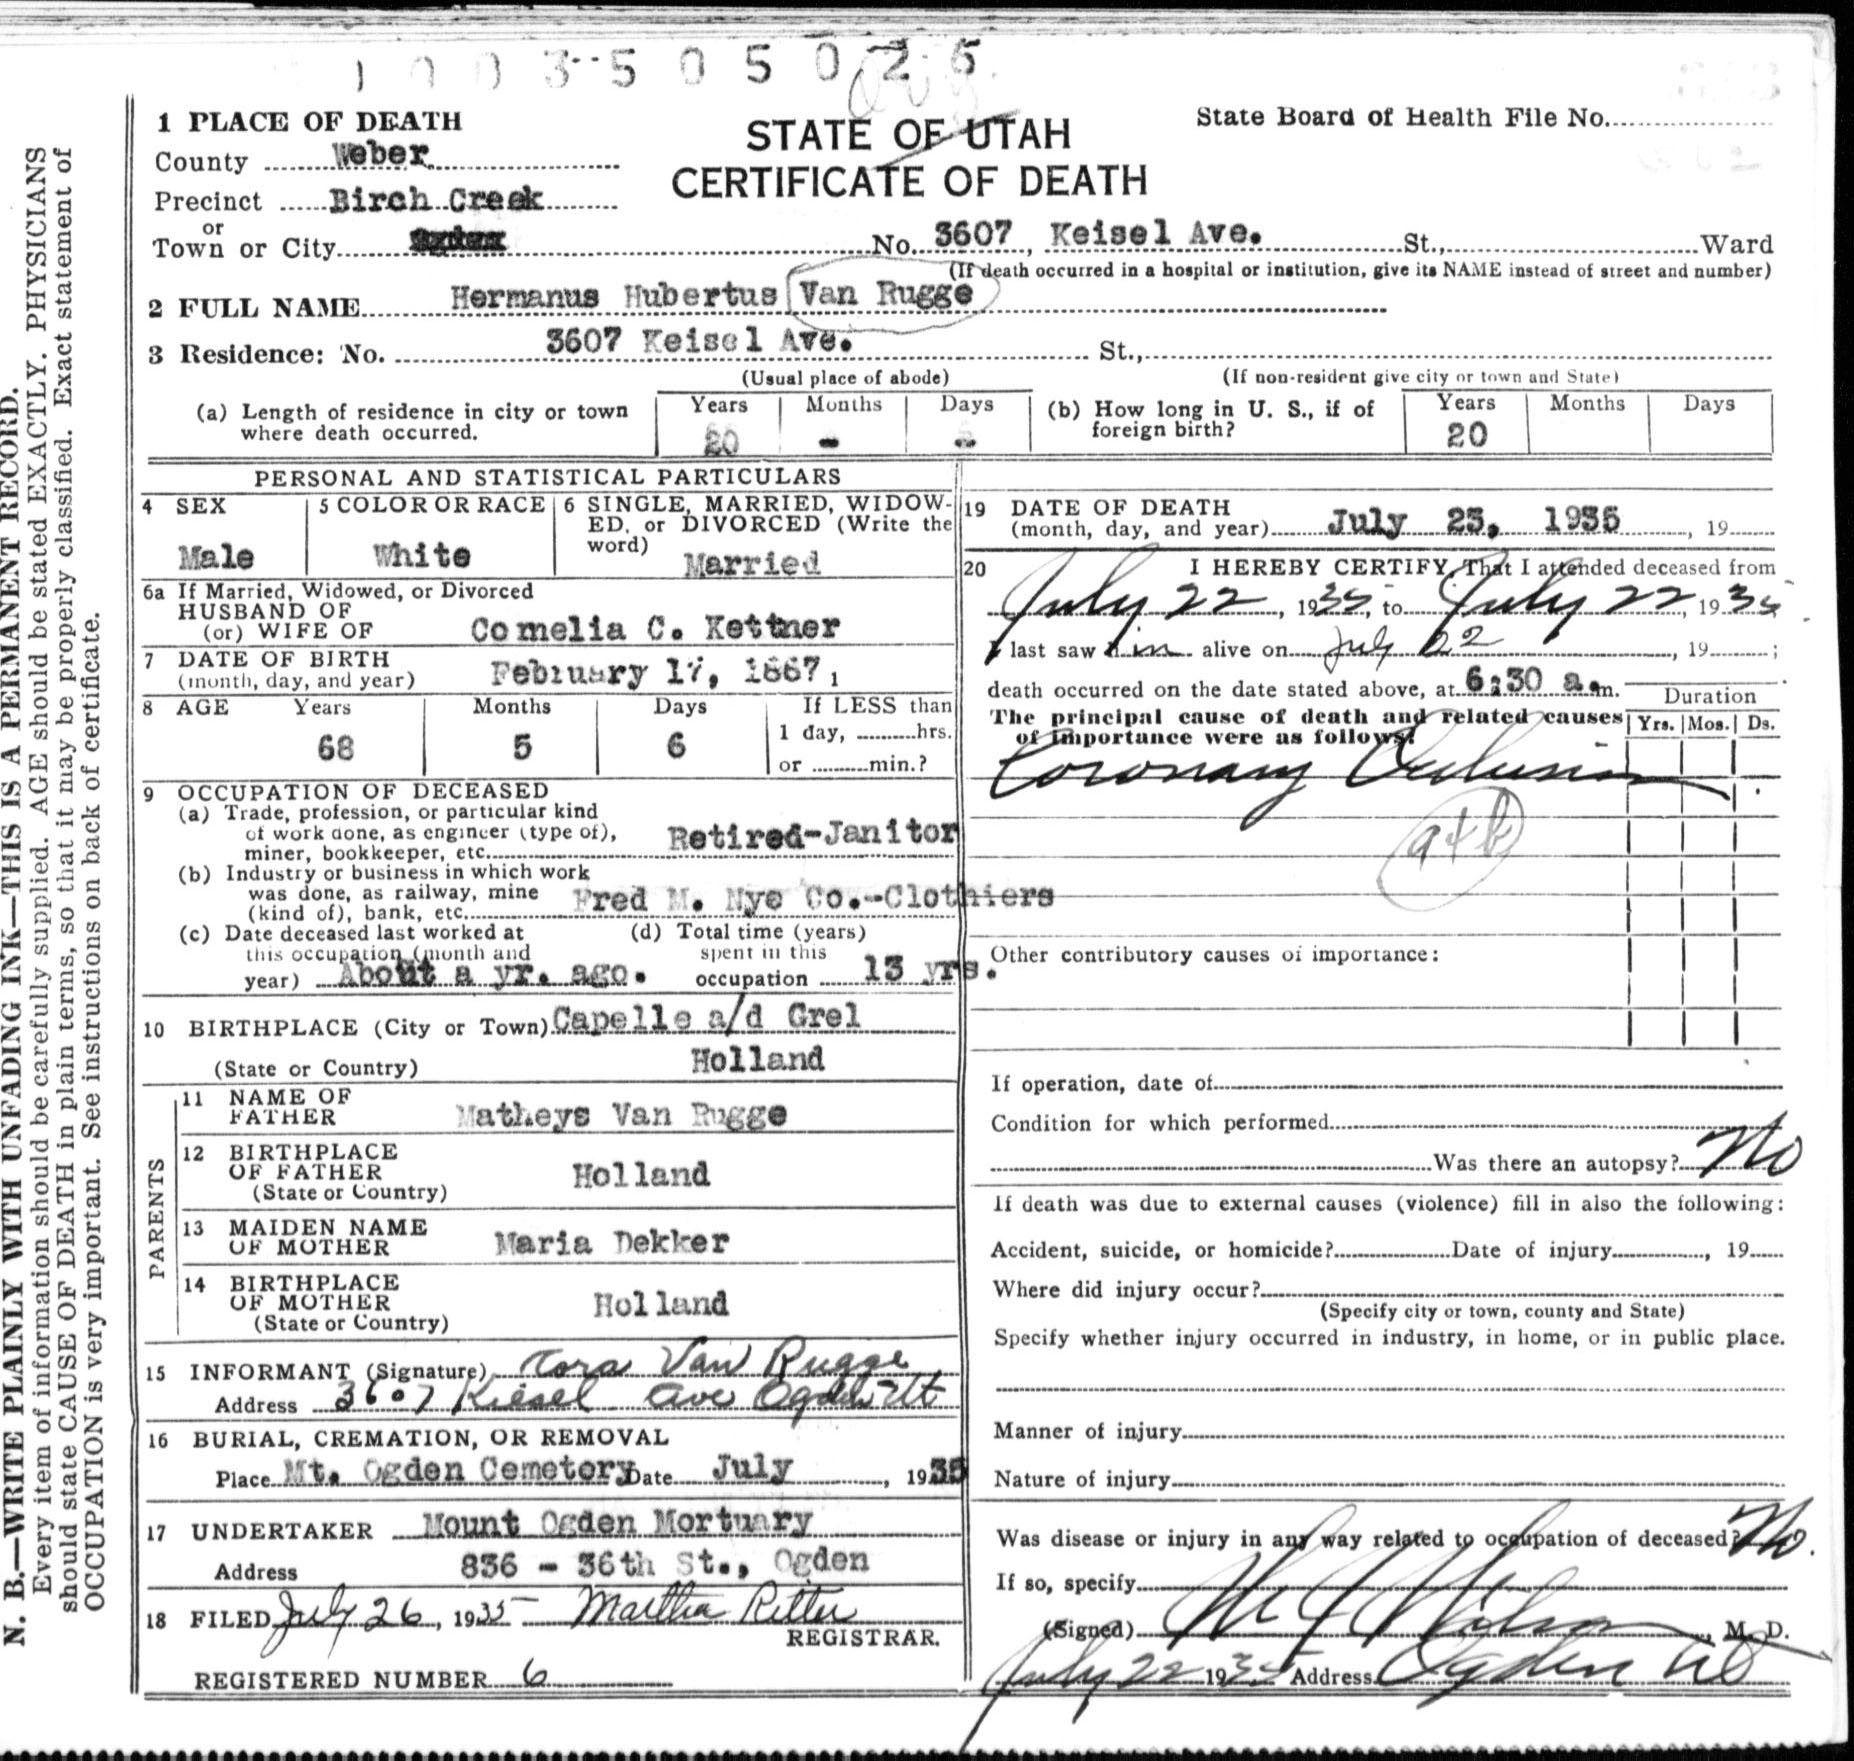 1003505026
N. B.—WRITE PLAINLY WITH UNFADING INK—THIS IS A PERMANENT RECORD.
Every item of information should be carefully supplied. AGE should be stated EXACTLY. PHYSICIANS
should state CAUSE OF DEATH in plain terms, so that it may be properly classified. Exact statement of
OCCUPATION is very important. See instructions on back of certificate.
STATE OF UTAH
CERTIFICATE OF DEATH
State Board of Health File No.
1 PLACE OF DEATH
County Weber
Precinct Birch Creek
or
Town or City No. 3607, Keisel Ave. St., Ward
(If death occurred in a hospital or institution, give its NAME instead of street and number)
2 FULL NAME Hermanus Hubertus Van Rugge
3 Residence: No. 3607 Keisel Ave. St.,
(Usual place of abode) (If non-resident give city or town and State)
(a) Length of residence in city or town where death occurred. Years 20 Months - Days -
(b) How long in U. S., if of foreign birth? Years 20 Months Days
PERSONAL AND STATISTICAL PARTICULARS
4 SEX
Male
5 COLOR OR RACE
White
6 SINGLE, MARRIED, WIDOW-
ED, or DIVORCED (Write the
word) Married
6a If Married, Widowed, or Divorced
HUSBAND OF
(or) WIFE OF Cornelia C. Kettner
7 DATE OF BIRTH
(month, day, and year) February 17, 1867
8 AGE Years Months Days If LESS than
68 5 6 1 day, hrs.
or min.?
9 OCCUPATION OF DECEASED
(a) Trade, profession, or particular kind
of work done, as engineer (type of),
miner, bookkeeper, etc. Retired-Janitor
(b) Industry or business in which work
was done, as railway, mine
(kind of), bank, etc. Fred M. Nye Co.-Clothiers
(c) Date deceased last worked at
this occupation (month and
year) About a yr. ago.
(d) Total time (years)
spent in this
occupation 13 yrs.
10 BIRTHPLACE (City or Town) Capelle a/d Grel
(State or Country) Holland
PARENTS
11 NAME OF
FATHER Matheys Van Rugge
12 BIRTHPLACE
OF FATHER Holland
(State or Country)
13 MAIDEN NAME
OF MOTHER Maria Dekker
14 BIRTHPLACE
OF MOTHER Holland
(State or Country)
15 INFORMANT (Signature) Cora Van Rugge
Address 3607 Kiesel Ave Ogden Ut
16 BURIAL, CREMATION, OR REMOVAL
Place Mt. Ogden Cemetery Date July, 1935
17 UNDERTAKER Mount Ogden Mortuary
Address 836 - 36th St., Ogden
18 FILED July 26, 1935 Martha Ritter
REGISTRAR.
REGISTERED NUMBER 6
19 DATE OF DEATH
(month, day, and year) July 23, 1935, 19
20 I HEREBY CERTIFY, That I attended deceased from
July 22, 1935, to July 22, 1935
I last saw him alive on July 22, 19 ;
death occurred on the date stated above, at 6:30 a.m.
Duration
The principal cause of death and related causes
of importance were as follows: Yrs. Mos. Ds.
Coronary Occlusion
Other contributory causes of importance:
If operation, date of
Condition for which performed
Was there an autopsy? No
If death was due to external causes (violence) fill in also the following:
Accident, suicide, or homicide? Date of injury, 19
Where did injury occur?
(Specify city or town, county and State)
Specify whether injury occurred in industry, in home, or in public place.
Manner of injury
Nature of injury
Was disease or injury in any way related to occupation of deceased? No.
If so, specify
(Signed) M. D.
July 22 1935 Address Ogden Ut